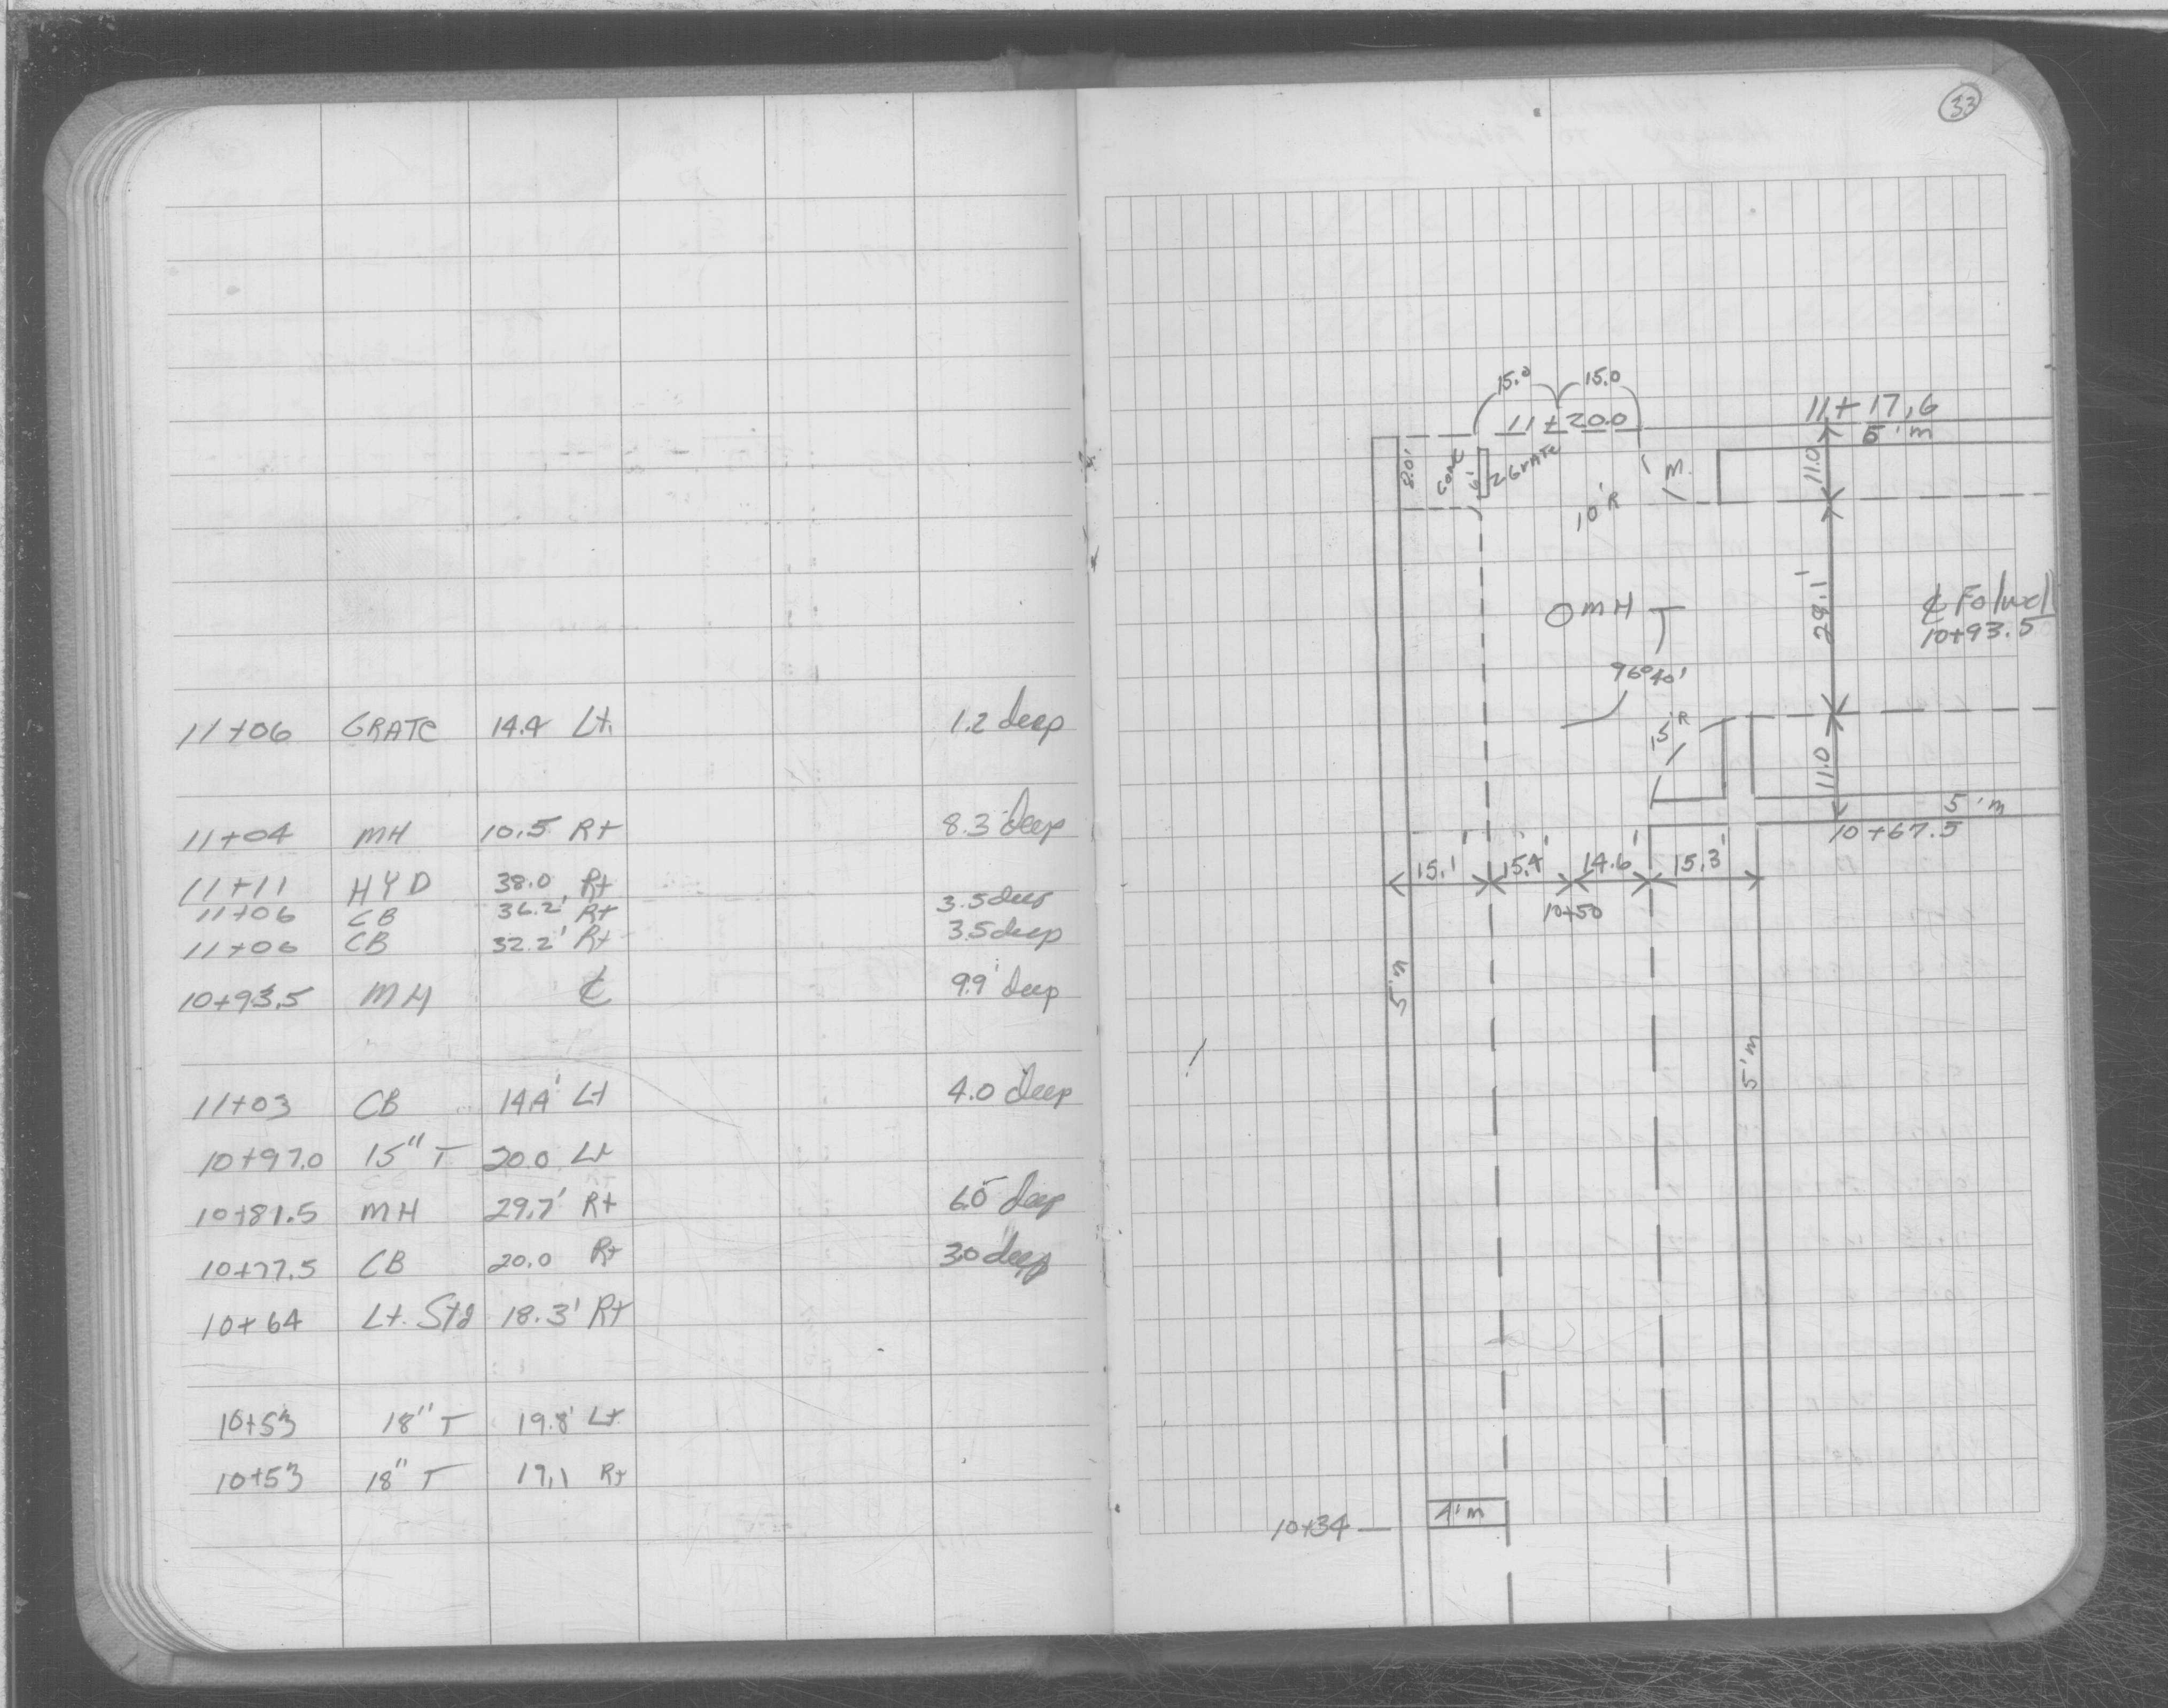 11+06 GRATE 14.4 Lt. 1.2 deep
11+04 MH 10.5 Rt 8.3 deep
11+11 HYD 38.0 Rt
11+06 CB 36.2' Rt 3.5 deep
11+06 CB 32.2' Rt 3.5 deep
10+93.5 MH ℄ 9.9' deep
11+03 CB 14.4' Lt 4.0 deep
10+97.0 15" T 20.0 Lt
10+81.5 MH 29.7' Rt 6.0 deep
10+77.5 CB 20.0 Rt 3.0 deep
10+64 Lt. Std 18.3' Rt
10+53 18" T 19.8' Lt
10+53 18" T 17.1 Rt
33
15.0 15.0
11+20.0
11+17.6
5'm
8.0' CONC 6' 2 GRATE
10'R
M.
11.0
MH
29.1'
℄ Folwell
10+93.5
96°40'
15'R
11.0
5'm
10+67.5
15.1' 15.4' 14.6' 15.3'
10+50
5'm
5'm
10+34
4'm